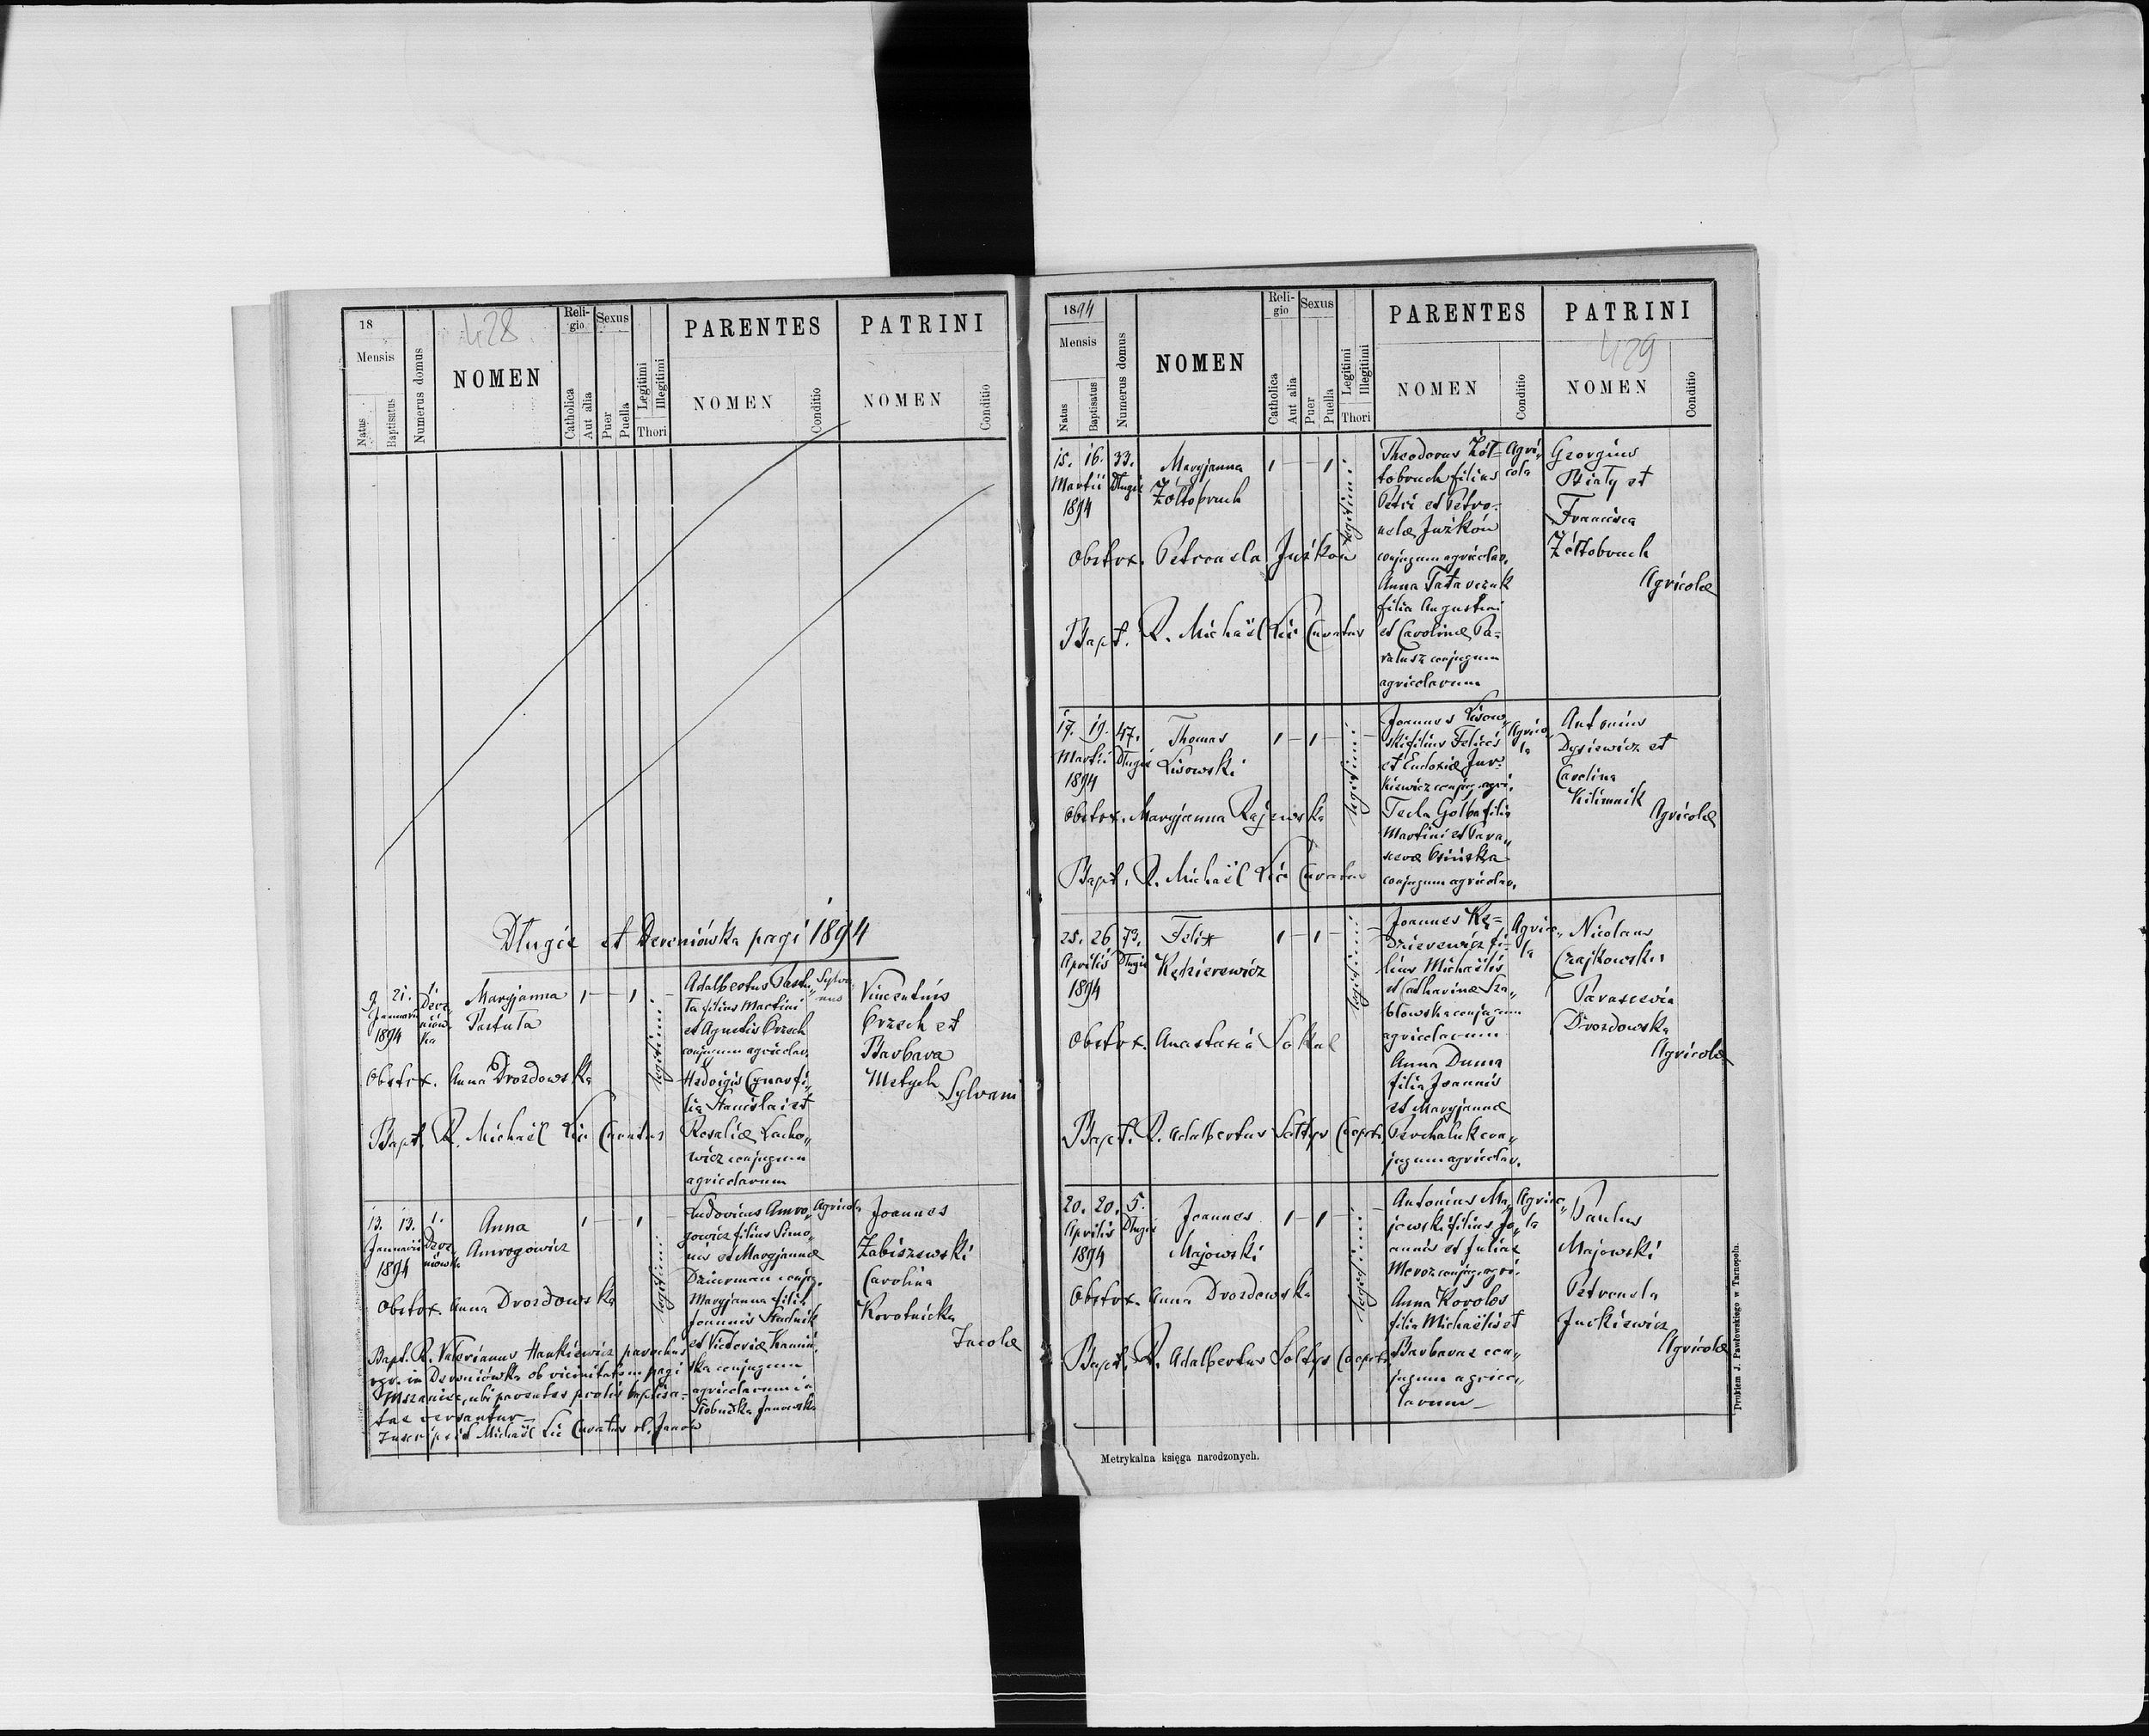 18
Mensis
Natus
Baptisatus
Numerus domus
428
NOMEN
Reli-
gio
Catholica
Aut alia
Sexus
Puer
Puella
Legitimi
Illegitimi
Thori
PARENTES
NOMEN
Conditio
PATRINI
NOMEN
Conditio
Długie et Dereniówka pagi 1894
9. 21. 1.
Januarii
1894
Maryjanna
legitimi
Adalbertus
ta filius Martini
et Agnetis Orzech
conjugum agricolar.
Hedvigis Cynar fi-
lia Stanislai et
Rosaliæ Lacho„
wicz conjugum
agricolarum
Vincentius
Orzech et
Barbara
Sylvani
Obstrx. Anna Drozdowska
Bapt. R. Michaël Lic Curatus
13. 13. 1.
Januarii
1894
Anna
Amrogowicz
legitimi
Ludovicus Amro„
gowicz filius Simo„
nis et Maryjannæ
Maryjanna filia
Joannis Stadnik
et Victoriæ
ska conjugum
agricolarum in
Słobudka Janowska
Agricola
Joannes
Zabiszewski
Carolina
Korotnicka
Incolæ
Obstrx. Anna Drozdowska
Bapt. R. Valerianus Hankiewicz parochus
in Dereniówka ob vicinitatem pagi
Mszaniec, ubi parentes prolis baptisa-
tae versantur
Inscripsit Michaël Lic Curatus
1894
Mensis
Natus
Baptisatus
Numerus domus
NOMEN
Reli-
gio
Catholica
Aut alia
Sexus
Puer
Puella
Legitimi
Illegitimi
Thori
PARENTES
NOMEN
Conditio
PATRINI
429
NOMEN
Conditio
15. 16. 33.
Martii Długie
1894
Maryjanna
Żółtobruch
legitimi
Theodorus Żół-
tobruch filius
Petri et Petro-
nelæ Juśków
conjugum agricolar.
Anna Tatarczuk
filia Augustini
et Carolinæ Pa-
ratusz conjugum
agricolarum
Agri„
cola
Georgius
Biały et
Francisca
Żółtobruch
Agricolæ
Obstrx. Petronela Juśków
Bapt. R. Michaël Lic Curatus
17. 19. 47.
Martii Długie
1894
Thomas
Lisowski
legitimi
Joannes Lisow„
ski filius Felicis
et Eudoxiæ Jur„
kiewicz conjug. agri.
Tecla Gołba filia
Martini et Para„
scevæ Osińska
conjugum agricolar.
Agrico„
la
Antonius
Dysiewicz et
Carolina
Kilimnik
Agricolæ
Obstrx. Maryjanna Rajewska
Bapt. R. Michaël Lic Curatus
25. 26. 73.
Aprilis Długie
1894
Felix
Kędzierewicz
legitimi
Joannes Kę-
dzierewicz fi-
lius Michaëlis
et Catharinæ Sza„
błowska conjugum
agricolarum
Anna Duma
filia Joannis
et Maryjannæ
Parchaluk con„
jugum agricolar.
Agrico„
la
Nicolaus
Czajkowski
Parascevia
Drozdowska
Agricolæ
Obstrx. Anastasia Sokal
Bapt. R. Adalbertus Sołtys Cooprt.
20. 20. 5.
Aprilis Długie
1894
Joannes
Majowski
legitimi
Antonius Ma„
jowski filius Jo„
annis et Juliae
Meroz conjug. agri.
Anna Korolos
filia Michaëlis et
Barbarae con„
jugum agrico„
larum
Agrico„
la
Paulus
Majowski
Petronela
Jurkiewicz
Agricolæ
Obstrx. Anna Drozdowska
Bapt. R. Adalbertus Sołtys Cooprt.
Metrykalna księga narodzonych.
Drukiem J. Pawłowskiego w Tarnopolu.